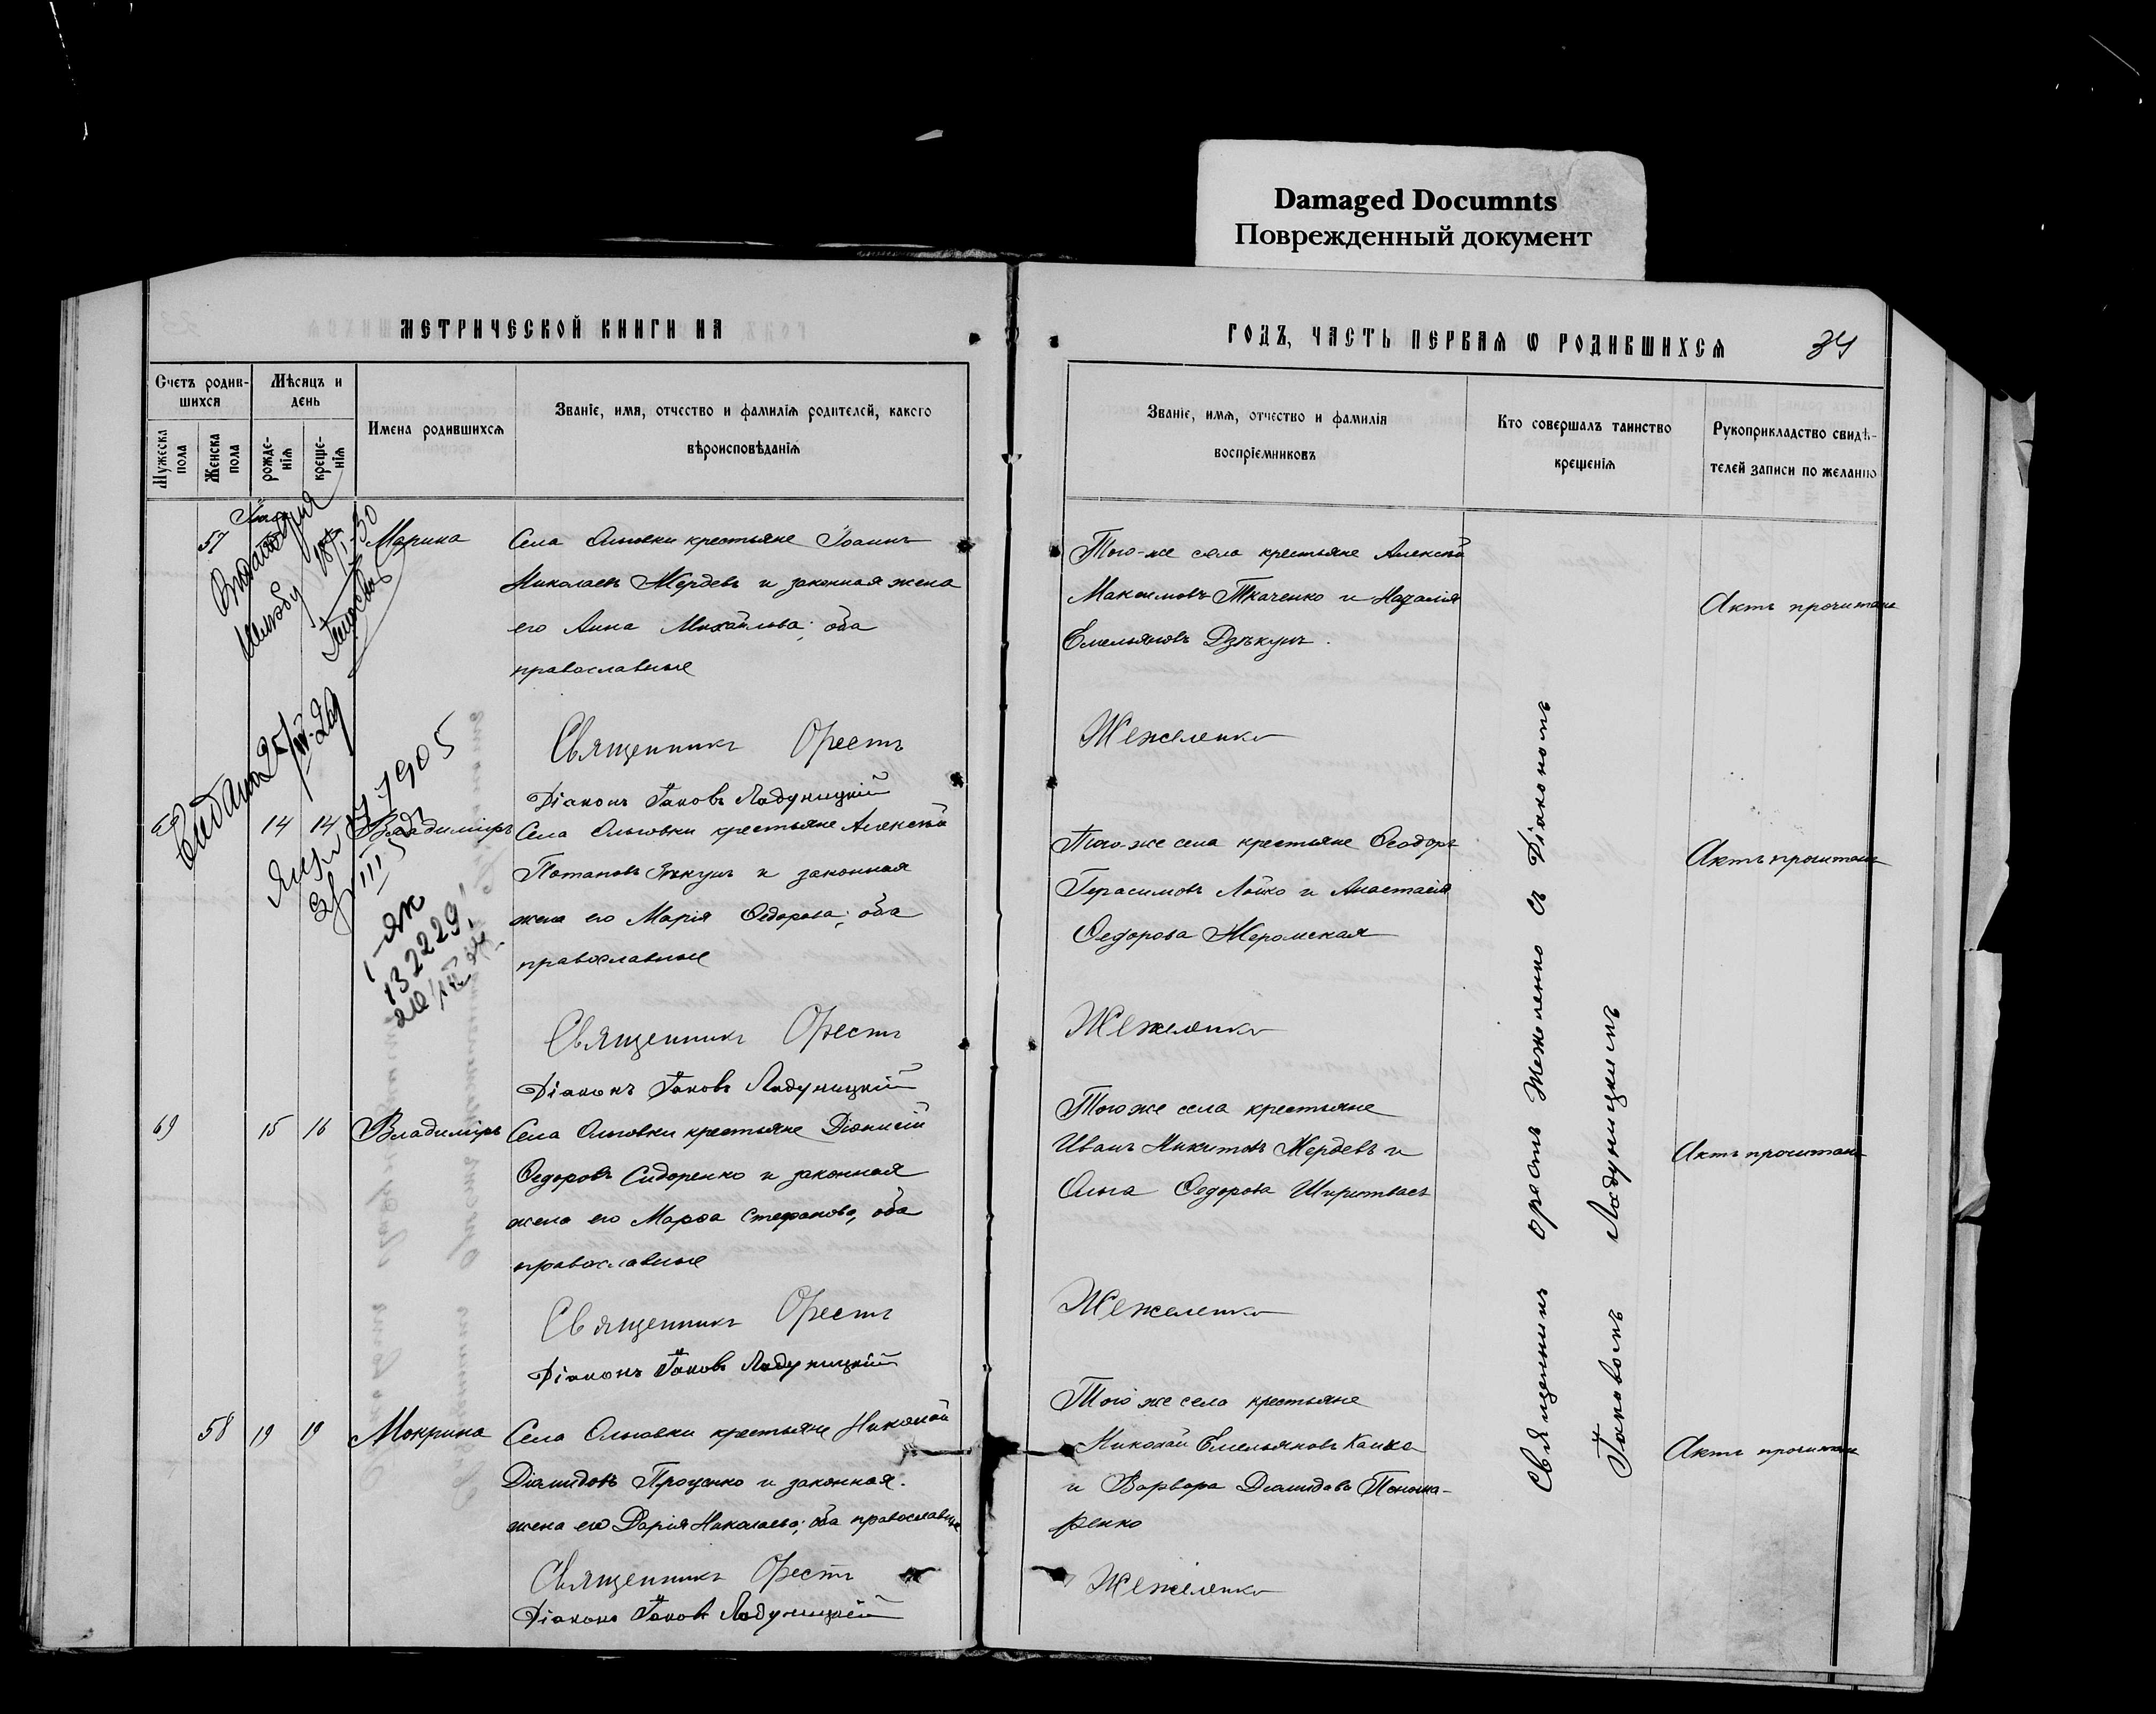 Damaged Documnts
Поврежденный документ
МЕТРИЧЕСКОЙ КНИГИ НА
ГОДЪ, ЧАСТЬ ПЕРВАЯ Ѡ РОДИВШИХСЯ
34
Счетъ родив-
шихся
Мѣсяцъ и
день
Мужеска
пола
Женска
пола
рожде-
нія
креще-
нія
Имена родившихся
Званіе, имя, отчество и фамилія родителей, какого
вѣроисповѣданія
Званіе, имя, отчество и фамилія
воспріемниковъ
Кто совершалъ таинство
крещенія
Рукоприкладство свидѣ-
телей записи по желанію
57
Марина
Села Ольховки крестьяне Іоаннъ
Николаевъ Жердевъ и законная жена
его Анна Михайлова; оба
православные
Священникъ Орестъ
Діаконъ Іаковъ Ладуницкій
Того-же села крестьяне Алексѣй
Максимовъ Ткаченко и Наталія
Емельянова
Жежеленко
Актъ прочитанъ
14 14 Владиміръ
Села Ольховки крестьяне Алексѣй
Потаповъ и законная
жена его Марія Ѳедорова; оба
православные
Священникъ Орестъ
Діаконъ Іаковъ Ладуницкій
Того-же села крестьяне Ѳеодоръ
Герасимовъ Лойко и Анастасія
Ѳедорова Жеромская
Жежеленко
Актъ прочитанъ
1905
132229
69 15 16 Владиміръ
Села Ольховки крестьяне Діонисій
Ѳедоровъ Сидоренко и законная
жена его Марѳа Стефанова, оба
православные
Священникъ Орестъ
Діаконъ Іаковъ Ладуницкій
Того же села крестьяне
Иванъ Никитовъ Жердевъ и
Ольга Ѳедорова
Жежеленко
Актъ прочитанъ
58 19 19 Макрина
Села Ольховки крестьяне Николай
Діамидовъ Проценко и законная
жена его Дарія Николаева; оба православные
Священникъ Орестъ
Діаконъ Іаковъ Ладуницкій
Того же села крестьяне
Николай Емельяновъ
и Варвара Діамидова Понома-
ренко
Жежеленко
Актъ прочитанъ
Священникъ Орестъ Жежеленко съ Діакономъ
Іаковомъ Ладуницкимъ